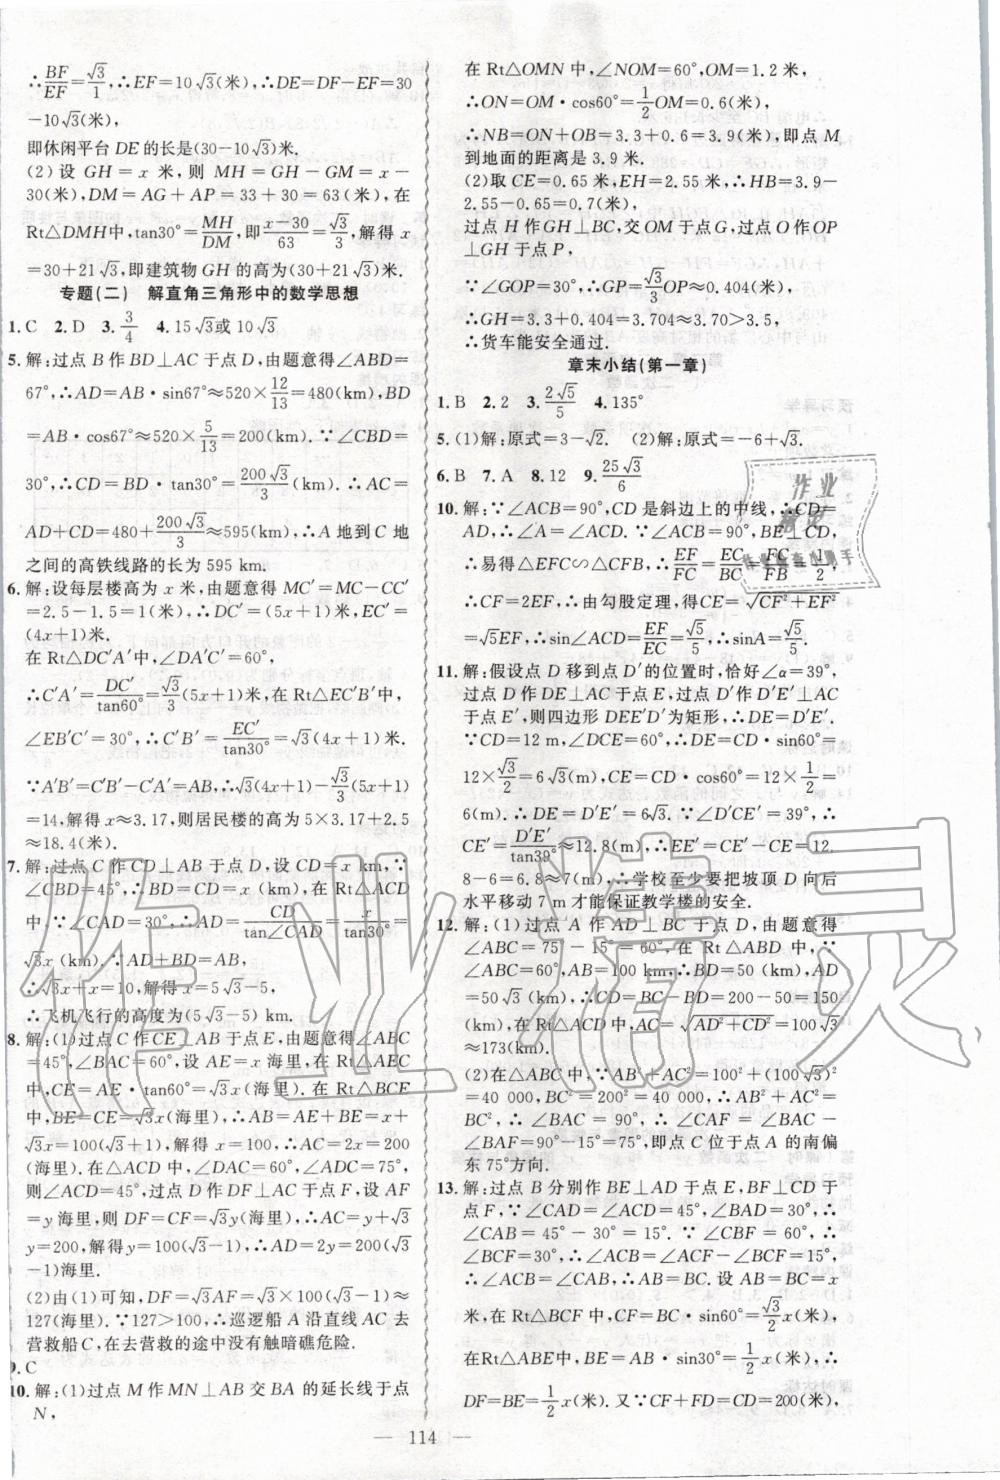 ∴BF/EF=√3/1,∴EF=10√3(米),∴DE=DF−EF=30
−10√3(米),
即休闲平台 DE 的长是(30−10√3)米.
(2)设 GH=x 米,则 MH=GH−GM=x−
30(米),DM=AG+AP=33+30=63(米),在
Rt△DMH中,tan30°=MH/DM,即(x−30)/63=√3/3,解得 x
=30+21√3,即建筑物 GH 的高为(30+21√3)米.
专题(二) 解直角三角形中的数学思想
1.C 2.D 3.3/4 4.15√3或10√3
5.解:过点 B 作 BD⊥AC 于点 D,由题意得∠ABD=
67°,∴AD=AB·sin67°≈520×12/13=480(km),BD
=AB·cos67°≈520×5/13=200(km).∵∠CBD=
30°,∴CD=BD·tan30°=200√3/3(km).∴AC=
AD+CD=480+200√3/3≈595(km).∴A 地到 C 地
之间的高铁线路的长为 595 km.
6.解:设每层楼高为 x 米,由题意得 MC′=MC−CC′
=2.5−1.5=1(米),∴DC′=(5x+1)米,EC′=
(4x+1)米.
在 Rt△DC′A′中,∠DA′C′=60°,
∴C′A′=DC′/tan60°=√3/3(5x+1)米,在 Rt△EC′B′中,
∠EB′C′=30°,∴C′B′=EC′/tan30°=√3(4x+1)米.
∵A′B′=C′B′−C′A′=AB,∴√3(4x+1)−√3/3(5x+1)
=14,解得 x≈3.17,则居民楼的高为 5×3.17+2.5
≈18.4(米).
7.解:过点 C 作 CD⊥AB 于点 D,设 CD=x km,∵
∠CBD=45°,∴BD=CD=x km,在 Rt△ACD
中,∵∠CAD=30°,∴AD=CD/tan∠CAD=x/tan30°=
√3x(km).∵AD+BD=AB,
∴√3x+x=10,解得 x=5√3−5,
∴飞机飞行的高度为(5√3−5)km.
8.解:(1)过点 C 作 CE⊥AB 于点 E,由题意得∠ABC
=45°,∠BAC=60°,设 AE=x 海里,在 Rt△AEC
中,CE=AE·tan60°=√3x(海里).在 Rt△BCE
中,BE=CE=√3x(海里),∴AB=AE+BE=x+
√3x=100(√3+1),解得 x=100,∴AC=2x=200
(海里).在△ACD 中,∠DAC=60°,∠ADC=75°,
则∠ACD=45°,过点 D 作 DF⊥AC 于点 F,设 AF
=y海里,则 DF=CF=√3y(海里),∴AC=y+√3
y=200,解得 y=100(√3−1),∴AD=2y=200(√3
−1)海里.
(2)由(1)可知,DF=√3AF=√3×100(√3−1)≈
127(海里).∵127>100,∴巡逻船 A 沿直线 AC 去
营救船 C,在去营救的途中没有触暗礁危险.
9.C
10.解:(1)过点 M 作 MN⊥AB 交 BA 的延长线于点
N,
在 Rt△OMN 中,∠NOM=60°,OM=1.2 米,
∴ON=OM·cos60°=1/2OM=0.6(米),
∴NB=ON+OB=3.3+0.6=3.9(米),即点 M
到地面的距离是 3.9 米.
(2)取 CE=0.65 米,EH=2.55 米,∴HB=3.9−
2.55−0.65=0.7(米),
过点 H 作 GH⊥BC,交 OM 于点 G,过点 O 作 OP
⊥GH 于点 P,
∵∠GOP=30°,∴GP=√3/3OP≈0.404(米),
∴GH=3.3+0.404=3.704≈3.70>3.5,
∴货车能安全通过.
章末小结(第一章)
1.B 2.2 3.2√5/5 4.135°
5.(1)解:原式=3−√2. (2)解:原式=−6+√3.
6.B 7.A 8.12 9.25√3/6
10.解:∵∠ACB=90°,CD是斜边上的中线,∴CD=
AD,∴∠A=∠ACD.∵∠ACB=90°,BE⊥CD,
∴易得△EFC∽△CFB,∴EF/FC=EC/BC=FC/FB=1/2,
∴CF=2EF,∴由勾股定理,得CE=√(CF²+EF²)
=√5EF,∴sin∠ACD=EF/EC=√5/5,∴sinA=√5/5.
11.解:假设点 D 移到点 D′的位置时,恰好∠α=39°,
过点 D 作 DE⊥AC 于点 E,过点 D′作 D′E′⊥AC
于点 E′,则四边形 DEE′D′为矩形,∴DE=D′E′.
∵CD=12 m,∠DCE=60°,∴DE=CD·sin60°=
12×√3/2=6√3(m),CE=CD·cos60°=12×1/2=
6(m).∴DE=D′E′=6√3.∵∠D′CE′=39°,∴
CE′=D′E′/tan39°≈12.8(m),∴EE′=CE′−CE=12.
8−6=6.8≈7(m),∴学校至少要把坡顶 D 向后
水平移动 7 m 才能保证教学楼的安全.
12.解:(1)过点 A 作 AD⊥BC 于点 D,由题意得
∠ABC=75°−15°=60°,在 Rt△ABD 中,∵
∠ABC=60°,AB=100 km,∴BD=50(km),AD
=50√3(km),∴CD=BC−BD=200−50=150
(km),在 Rt△ACD 中,AC=√(AD²+CD²)=100√3
≈173(km).
(2)在△ABC 中,∵AB²+AC²=100²+(100√3)²
=40 000,BC²=200²=40 000,∴AB²+AC²=
BC²,∴∠BAC=90°,∴∠CAF=∠BAC−
∠BAF=90°−15°=75°,即点 C 位于点 A 的南偏
东 75°方向.
13.解:过点 B 分别作 BE⊥AD 于点 E,BF⊥CD 于
点 F,∵∠CAD=45°,∠BAD=30°,∴
∠CAB=45°−30°=15°.∵∠CBF=60°,
∠BCF=30°,∴∠ACB=∠ACF−∠BCF=15°,
∴∠ACB=∠CAB,∴AB=CB.设 AB=BC=x
米,在 Rt△BCF 中,CF=BC·sin60°=√3/2x(米),
在Rt△ABE中,BE=AB·sin30°=1/2x(米),∴
DF=BE=1/2x(米).又∵CF+FD=CD=200(米),
— 114 —
作业精灵